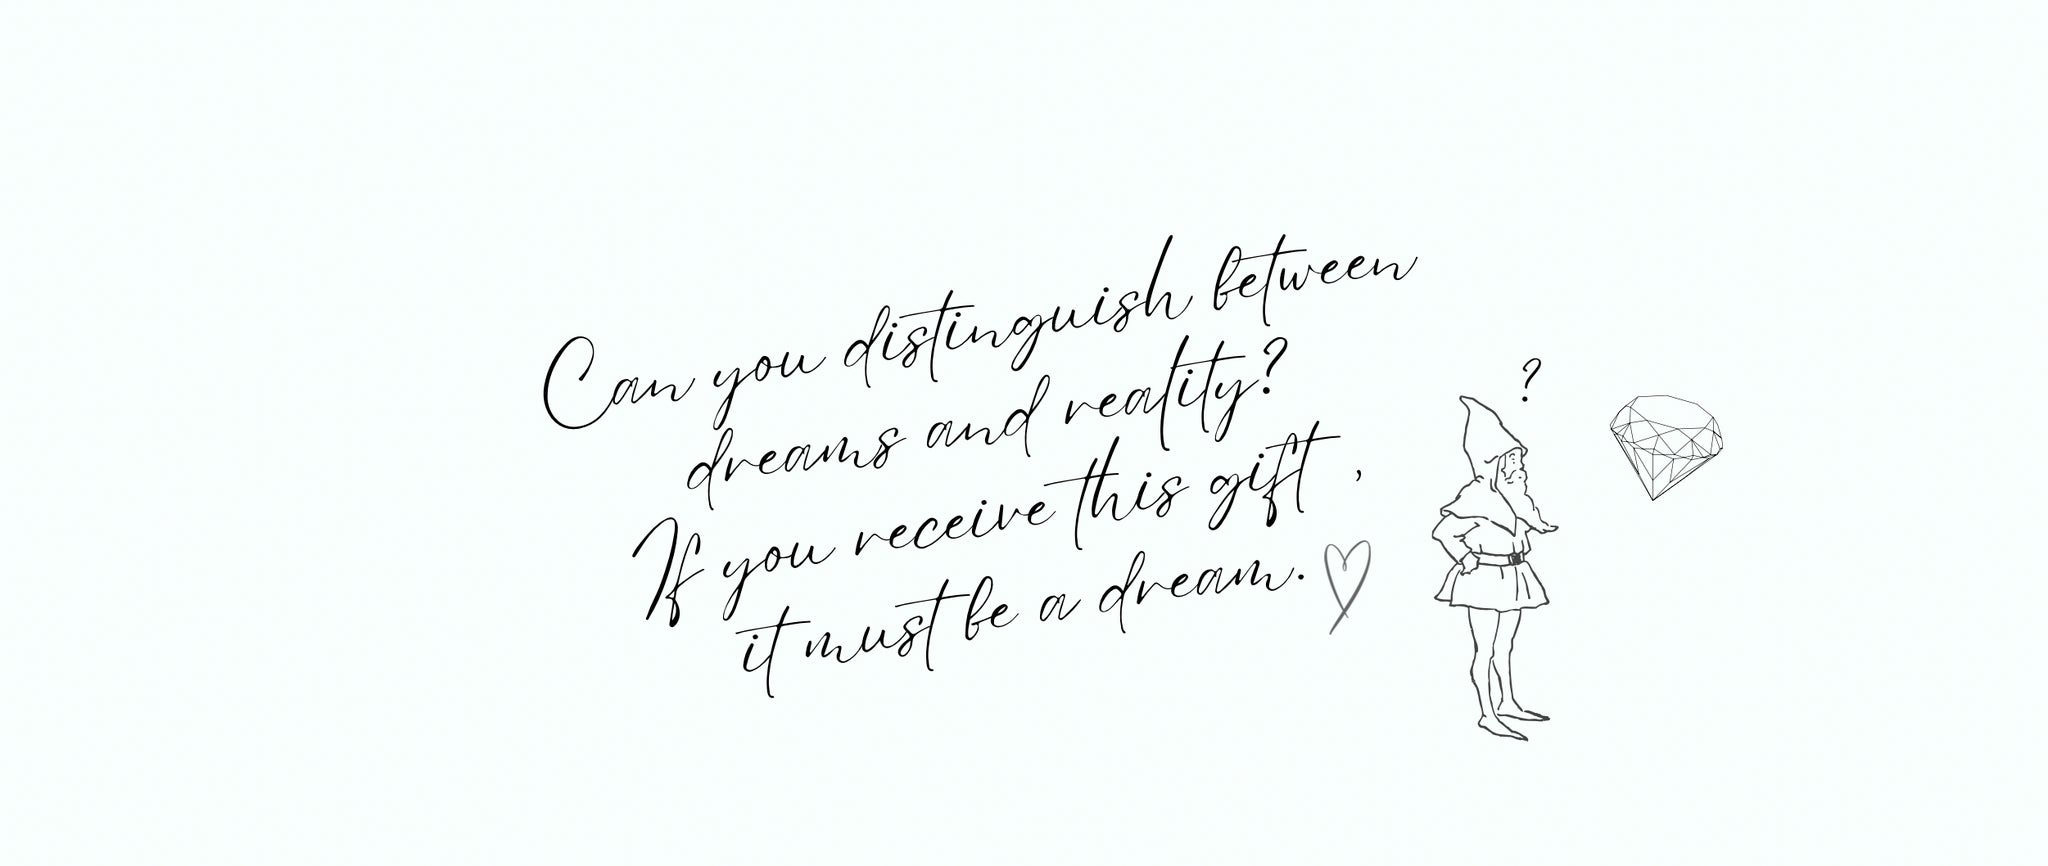 Can you distinguish between
dreams and reality?
If you receive this gift ,
it must be a dream.
?